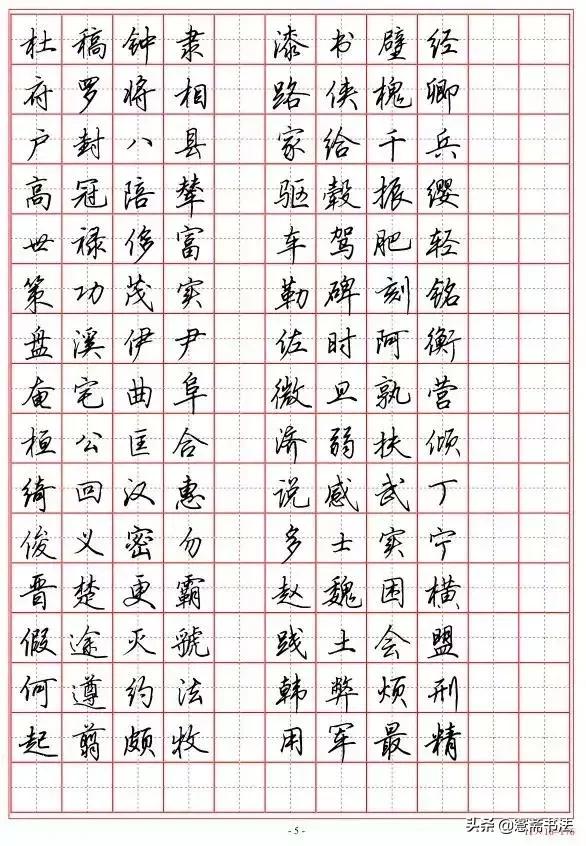 杜稿钟隶 漆书壁经
府罗将相 路侠槐卿
户封八县 家给千兵
高冠陪辇 驱毂振缨
世禄侈富 车驾肥轻
策功茂实 勒碑刻铭
盘溪伊尹 佐时阿衡
奄宅曲阜 微旦孰营
桓公匡合 济弱扶倾
绮回汉惠 说感武丁
俊义密勿 多士实宁
晋楚更霸 赵魏困横
假途灭虢 践土会盟
何遵约法 韩弊烦刑
起翦颇牧 用军最精
- 5 -
头条 @鸳斋书法